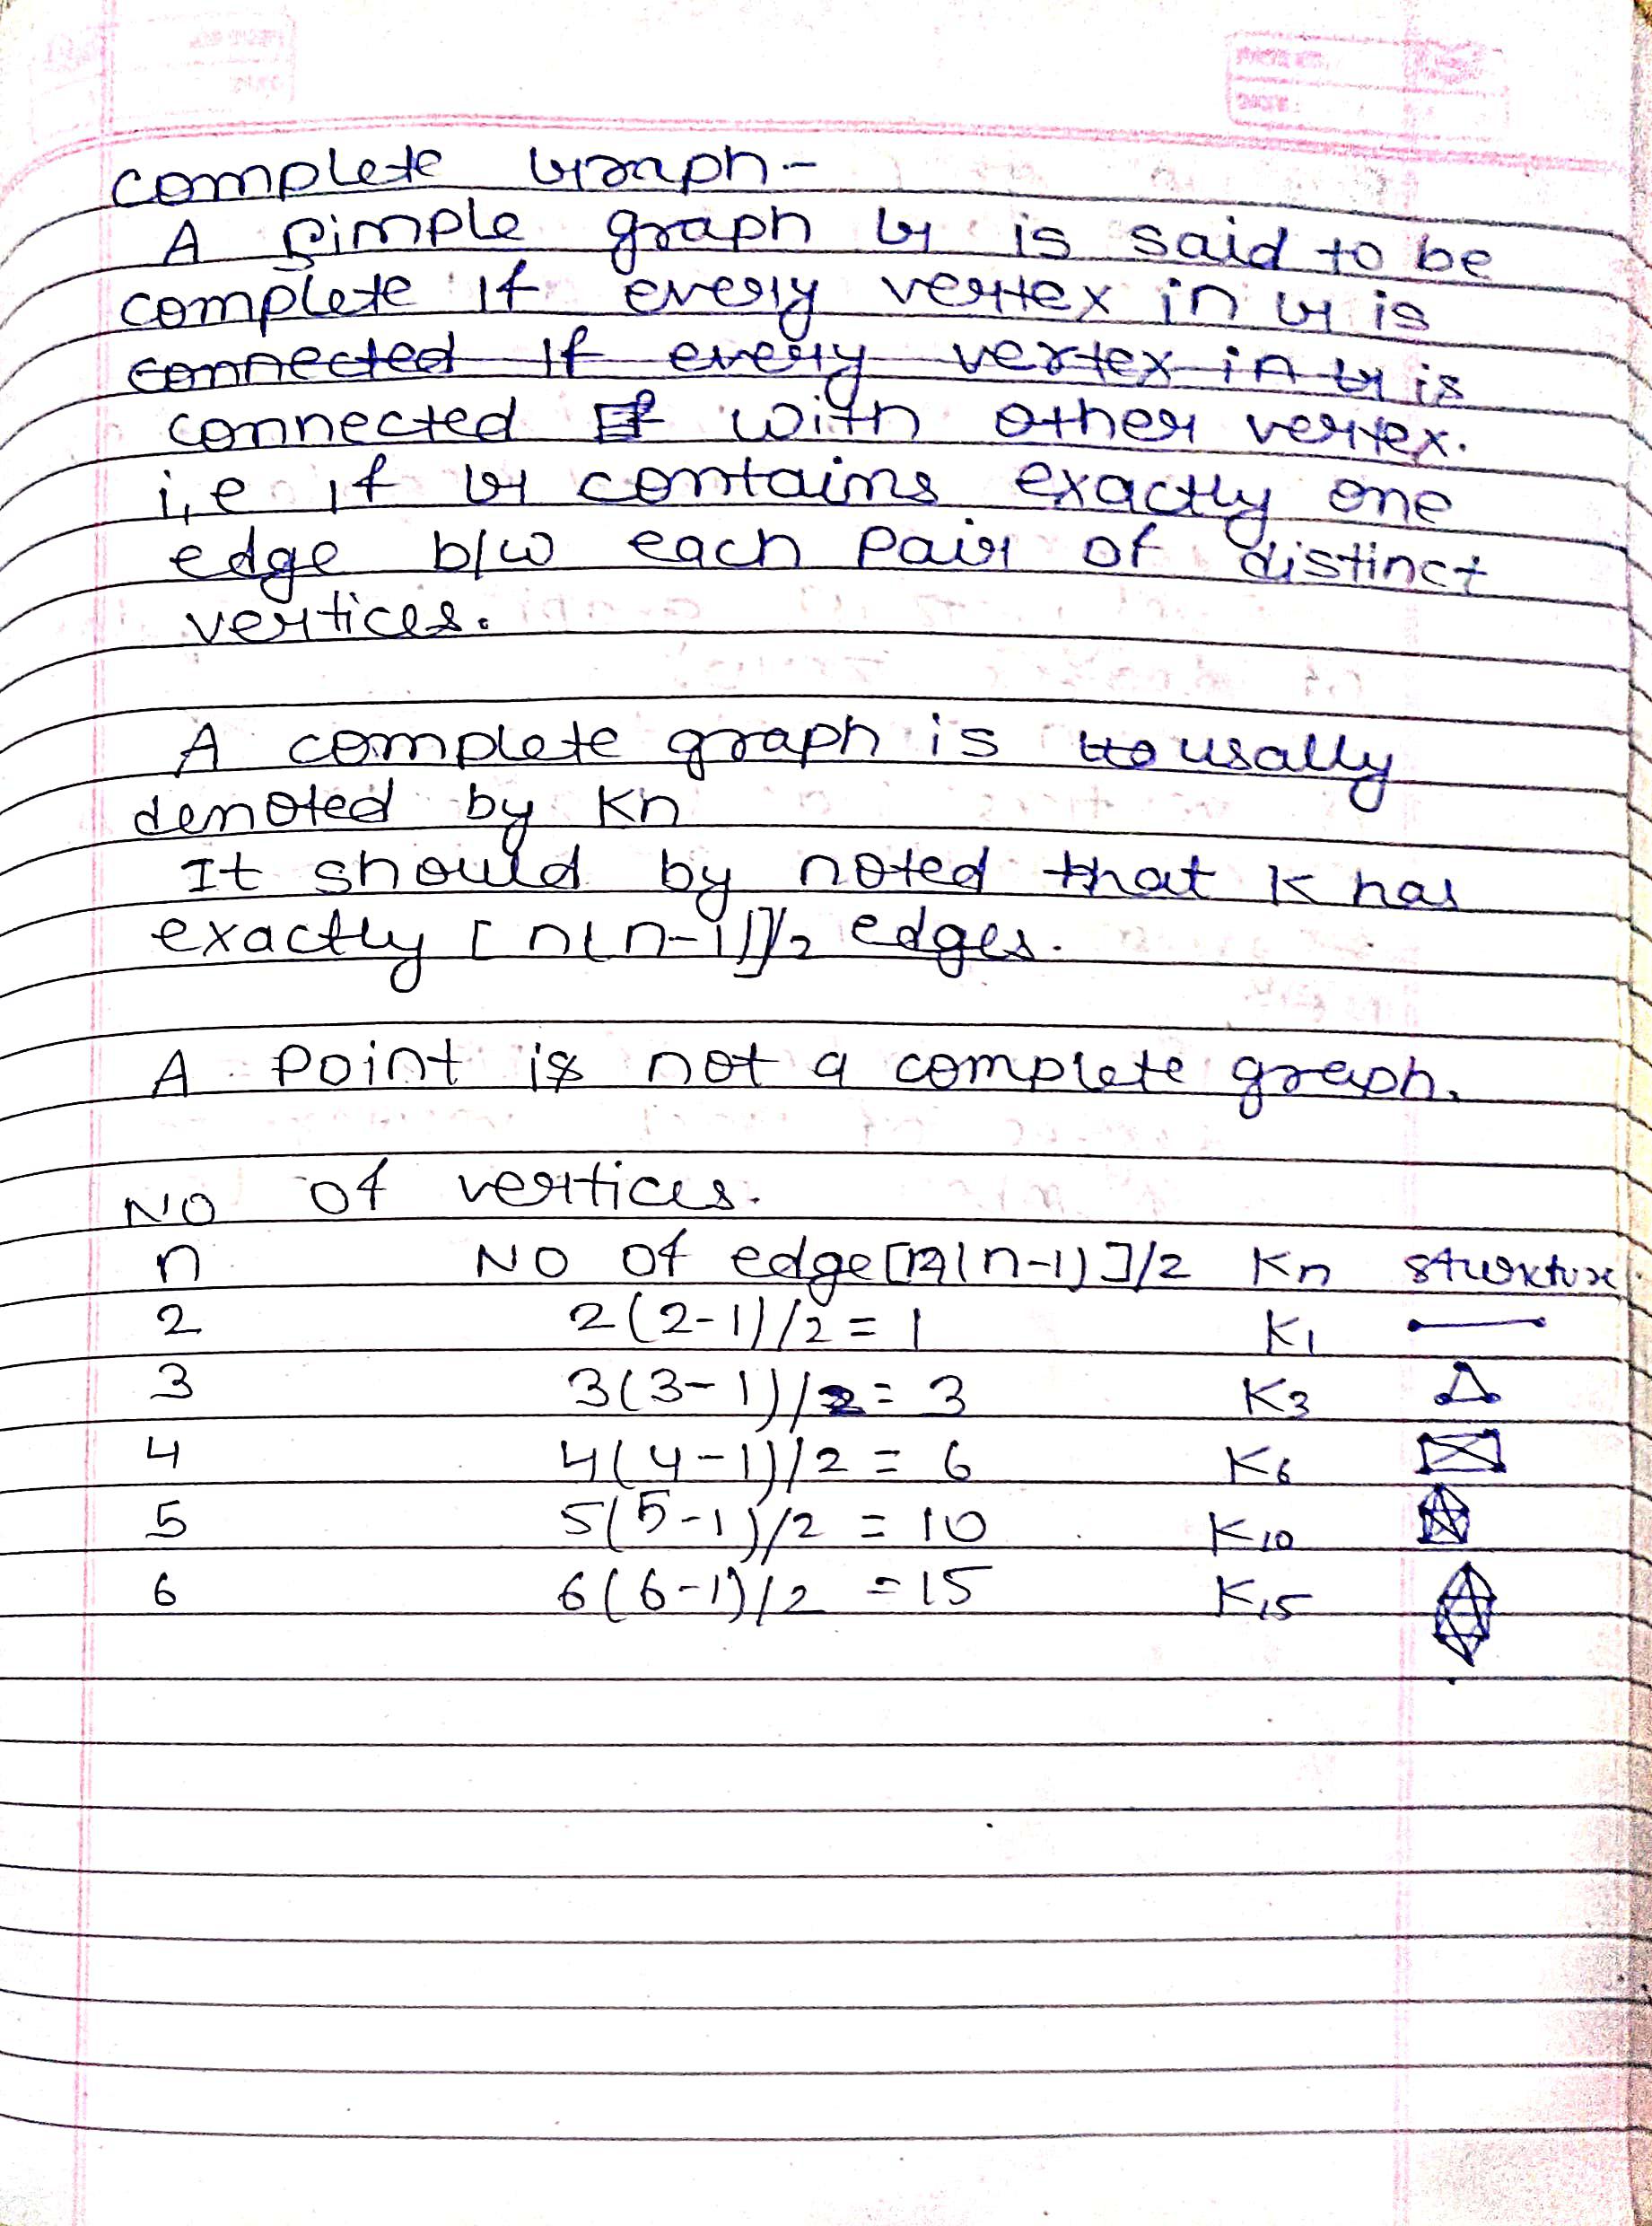 complete Graph-
A simple graph G is said to be
complete if every vertex in G is
connected if every vertex in G is
connected If with other vertex.
i,e if G contains exactly one
edge b/w each Pair of distinct
vertices.
A complete graph is to usally
denoted by Kn
It should by noted that K has
exactly [n(n-1)]/2 edges.
A Point is not a complete graph.
NO of vertices.
n NO of edge[n(n-1)]/2 Kn sturxture
2 2(2-1)/2=1 K1
3 3(3-1)/2=3 K3
4 4(4-1)/2=6 K6
5 5(5-1)/2=10 K10
6 6(6-1)/2=15 K15